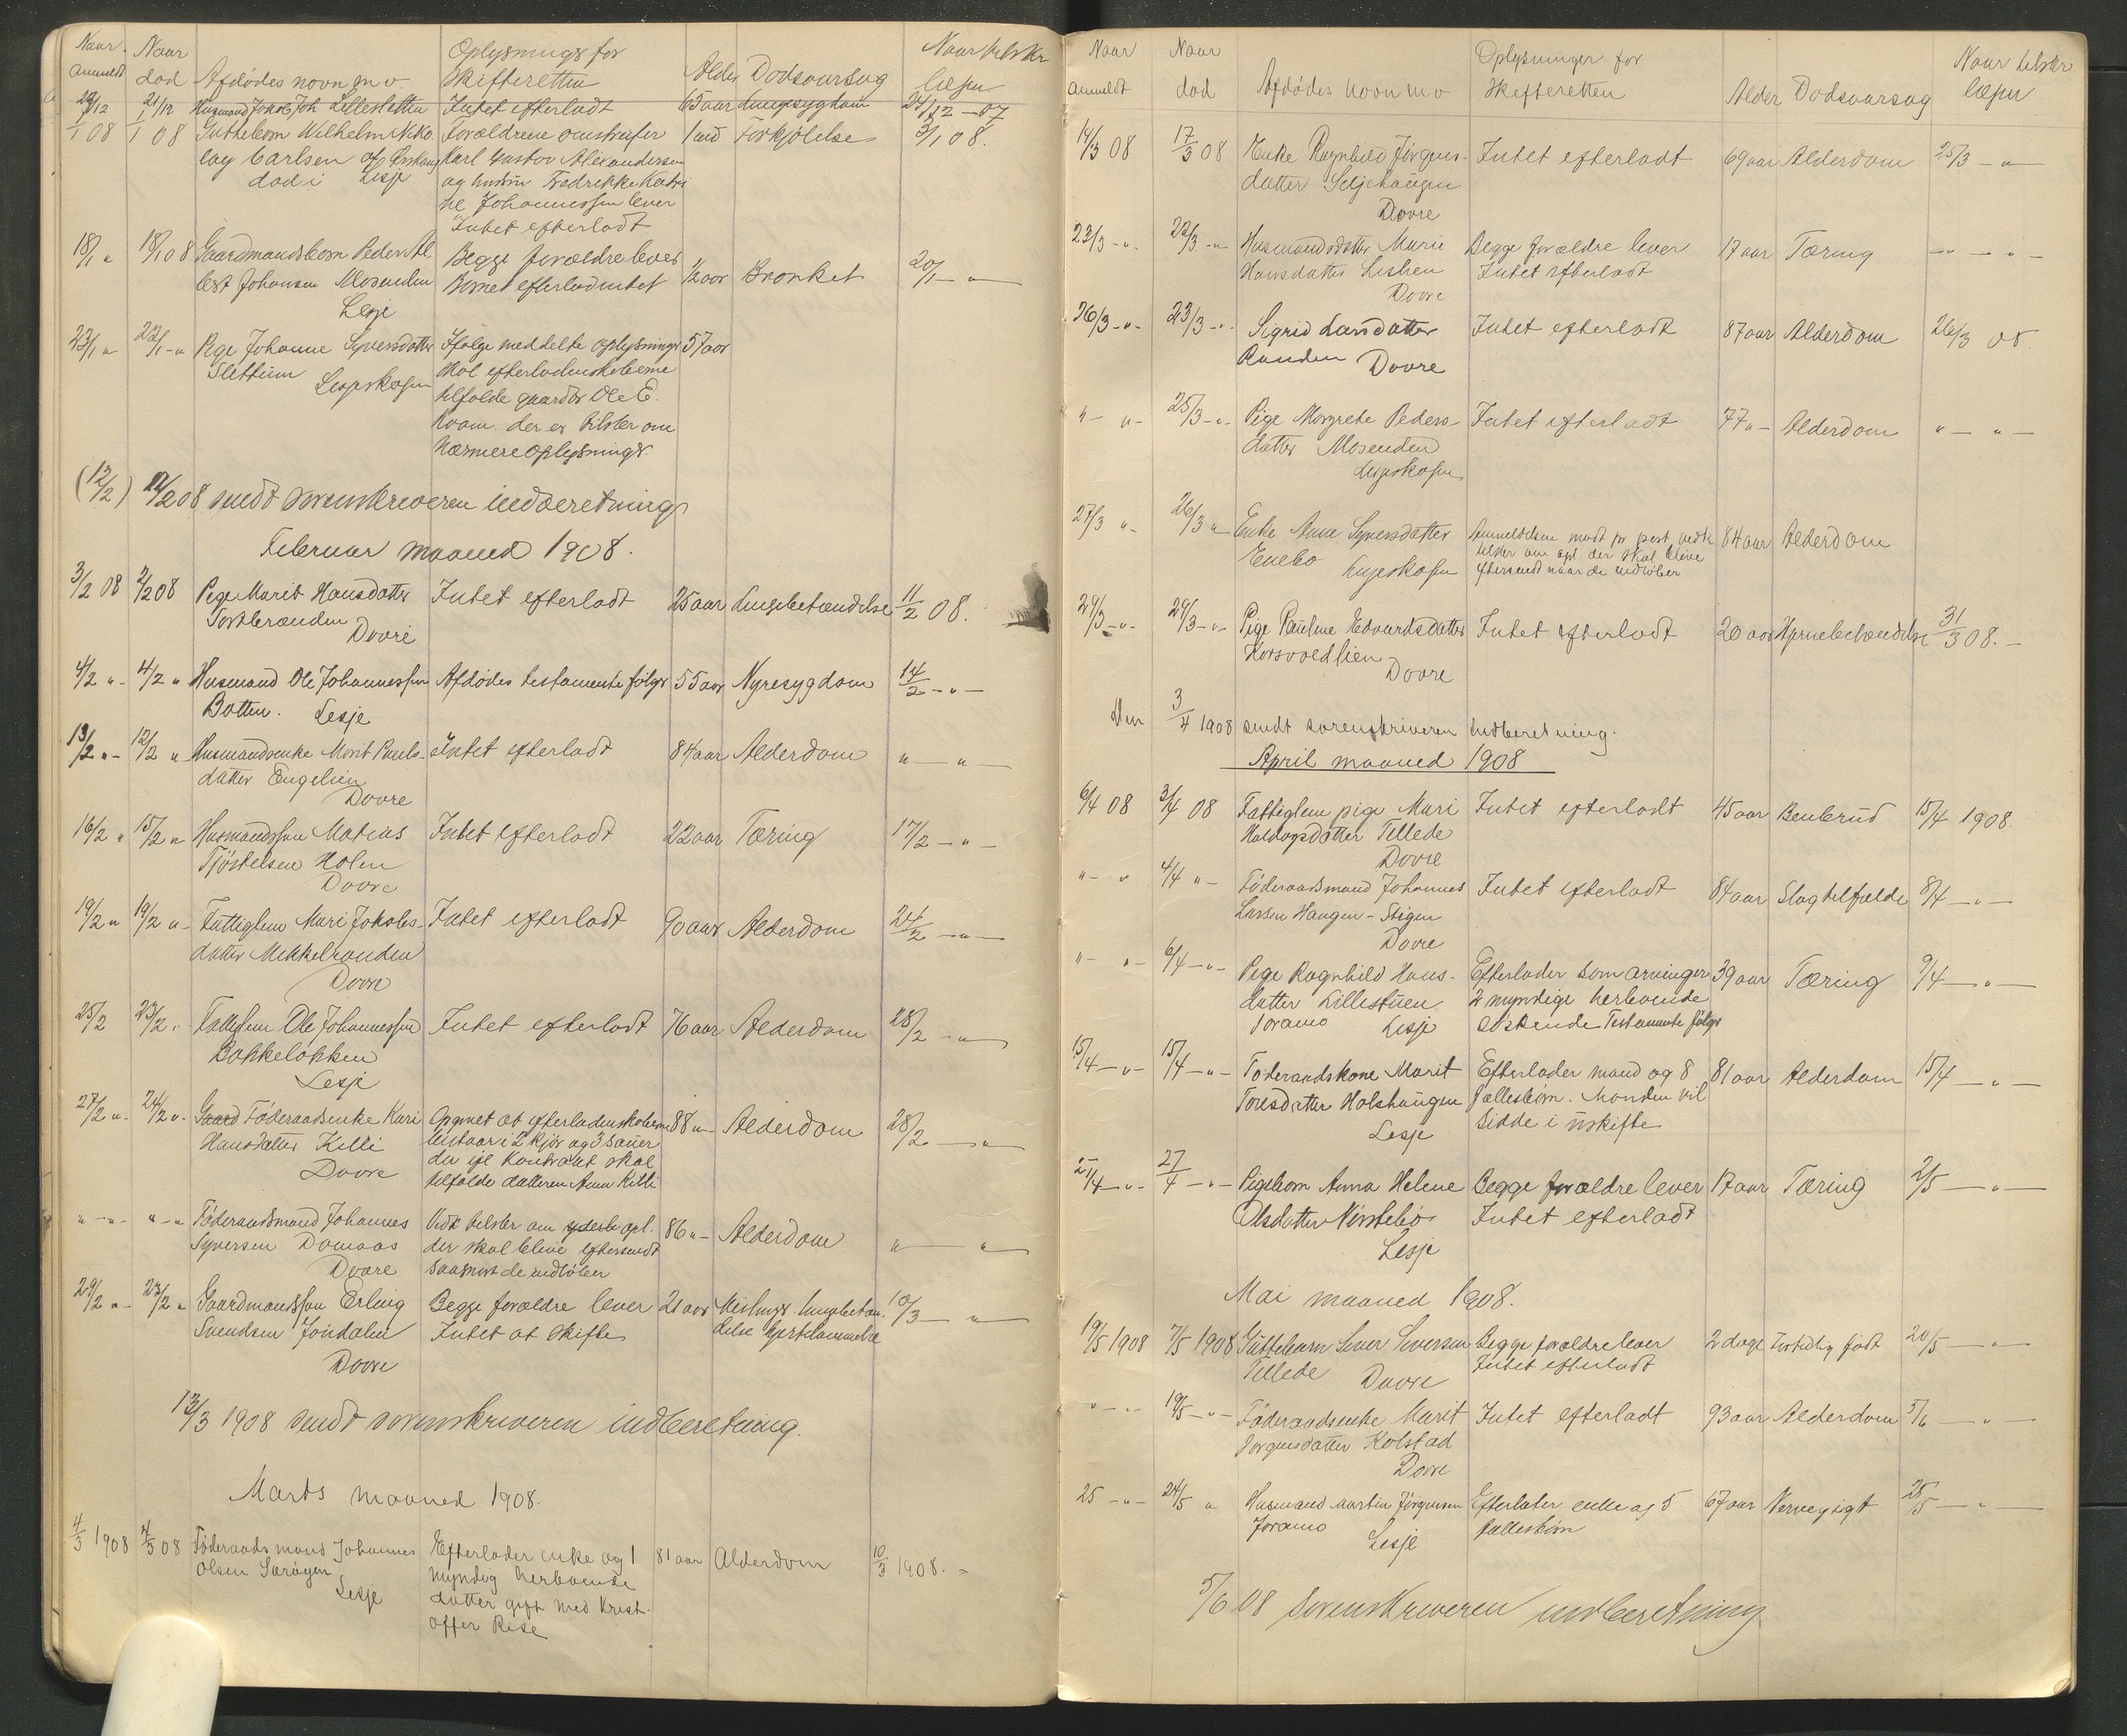 Naar Naar Oplysnings for Naar tilskr
anmeldt død Afdødes navn m v Skifteretten Alder Dødsaarsag lægen
21/12 Husmand Joh Lillesletten Intet efterladt 65 aar Lungesygdom 24/12 – 07
1/1 08 1/1 08 Guttebarn Wilhelm Niko Forældrene omstreifer 1 md Forkjølelse 3/1 08.
lay Carlsen af Ørskaug Karl Gustav Alexandersen
død i Lesje og hustru Fredrikke Katri
ne Johannessen lever
Intet efterladt
18/1 " 18/1 08 Gaardmandsbarn Peder Al Begge forældre lever 1/2 aar Bronket 20/1 – " –
bert Johansen Mosenden Barnet efterlod intet
Lesje
23/1 " 22/1 – " Pige Johanne Syversdatter Ifølge meddelte oplysninger 57 aar
Slettum skal efterladenskaberne
Lesjeskogen tilfalde gaardbr Ole E.
Kvam. der er tilskr om
nærmere oplysninger.
(12/2) 12/2 08 sendt sorenskriveren indberetning
Februar maaned 1908.
3/2 08 2/2 08 Pige Marit Hansdatter Intet efterladt 25 aar Lungebetændelse 11/2 08.
Tortbrænden
Dovre
4/2 " – 4/2 " Husmand Ole Johannessen Afdødes testamente følger 55 aar Nyresygdom 14/2 – " –
Botten. Lesje
13/2 " – 12/2 " Husmandsenke Marit Pauls- Intet efterladt 84 aar Alderdom " – " –
datter Engelien
Dovre
16/2 " 15/2 " Husmandssøn Matias Intet efterladt 22 aar Tæring 17/2 – " –
Tjøstelsen Holen
Dovre
19/2 " 19/2 " – Fattiglem Mari Jakobs- Intet efterladt 90 aar Alderdom 24/2 – " –
datter Mekkelranden
Dovre
25/2 23/2 " Fattiglem Ole Johannessen Intet efterladt 76 aar Alderdom 28/2 – " –
Bakkeløkken
Lesje
27/2 " – 24/2 " – Gaard Føderaadsenke Kari Opgivet at efterladenskaberne 88 " – Alderdom 28/2 – " –
Hansdatter Killi bestaar i 2 kjør og 3 sauer
Dovre der ifl kontrakt skal
tilfalde datteren Anne Killi
" – " – " – " Føderaadsmand Johannes Vedk tilskr om yderl. opl. 86 " – Alderdom " – "
Syversen Domaas der skal blive eftersendt
Dovre saasnart de indløber
29/2 " – 23/2 " Gaardmandssøn Erling Begge forældre lever 21 aar Meslinger. lungebetæn 10/3 – "
Svendsen Jondalen Intet at skifte delse hjertelammelse
Dovre
13/3 1908 sendt sorenskriveren indberetning.
Marts maaned 1908.
4/3 1908 08 Føderaadsmand Johannes Efterlader enke og 1 81 aar Alderdom 10/3 1908. –
Olsen myndig herboende
Lesje datter gift med Krist
offer Rise
Naar Naar Oplysninger for Naar tilskr
anmeldt død Afdødes navn m v Skifteretten Alder Dødsaarsag lægen
14/3 08 17/3 08 Enke Ragnhild Jørgens- Intet efterladt 69 aar Alderdom 25/3 – " –
datter Seljehaugen
Dovre
23/3 – " – 22/3 – " Husmandsdatter Marie Begge forældre lever 17 aar Tæring – " – " –
Hansdatter Intet efterladt
Dovre
26/3 – " – 23/3 – " – Sigrid Larsdatter Intet efterladt 87 aar Alderdom 26/3 08.
Randen Dovre
" – " – 25/3 – " – Pige Margrete Peders- Intet efterladt 77 " – Alderdom " – " –
datter Mosenden
Lesjeskogen
27/3 " – 26/3 " Enke Anne Syversdatter Anmeldelsen modt pr post vedk 84 aar Alderdom
Enebo tilskr om opl. der skal blive
Lesjeskogen eftersendt naar de indløber
29/3 – " – 29/3 – " – Pige Pauline Edvardsdatter Intet efterladt 20 aar Hjernebetændelse 31/3 08. –
Korsvoldlien
Dovre
Den 3/4 1908 sendt sorenskriveren indberetning.
April maaned 1908
6/4 08 3/4 08 Fattiglem pige Mari Intet efterladt 45 aar Benbrud 15/4 1908.
Haldogsdatter Tellede
Dovre
" – " 4/4 " – Føderaadsmand Johannes Intet efterladt 84 aar Slagtilfælde 8/4 – " –
Larsen Haugen – Stigen
Dovre
" – " – 6/4 – " – Pige Ragnhild Hans- Efterlader som arvinger 39 aar Tæring 9/4 – " –
datter Lillestuen 2 myndige herboende
Joramo Lesje søskende Testamente følger
15/4 – " – 15/4 – " – Føderaadskone Marit Efterlader mand og 8 81 aar Alderdom 15/4 – " –
Toresdatter Holshaugen fællesbørn. Manden vil
Lesje sidde i uskifte
/4 – " – 27/4 – " – Pigebarn Anna Helene Begge forældre lever 17 aar Tæring 2/5 – " –
Olsdatter Nørstebø Intet efterladt
Lesje
Mai maaned 1908.
19/5 1908 7/5 1908 Guttebarn Sever Seversen Begge forældre lever 2 dage Fortidlig født 20/5 – " –
Tellede Dovre Intet efterladt
" – " – 19/5 – " – Føderaadsenke Marit Intet efterladt 93 aar Alderdom 5/6 – " –
Jørgensdatter Kolstad
Dovre
25 – " – 24/5 " Husmand Martin Jørgensen Efterlater enke og 5 67 aar Nervegigt 25/5 – " –
Joramo Lesje fællesbørn
5/6 08 Sorenskriveren indberetning